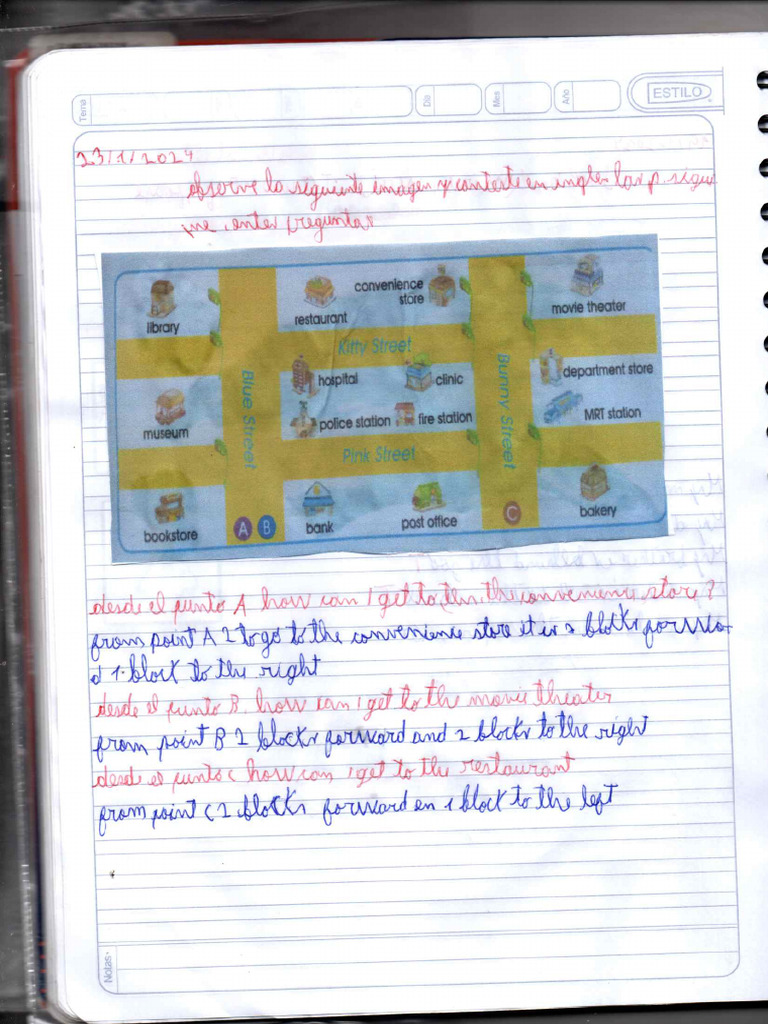 Tema
Dia
Mes
Año
ESTILO
23/1/2024
observe la siguiente imagen y conteste en ingles las p. sigui
preguntas
library
restaurant
convenience
store
movie theater
Kitty Street
hospital
clinic
department store
Blue Street
Bunny Street
museum
police station
fire station
MRT station
Pink Street
bookstore
A
B
bank
post office
C
bakery
desde el punto A how can I get to the convenience store?
from point A 2 to go to the convenience store it is 2 blocks forwar
d 1 block to the right
desde el punto B. how can I get to the movie theater
from point B 2 blocks forward and 2 blocks to the right
desde el punto C how can I get to the restaurant
from point C 2 blocks forward en 1 block to the left
Notas